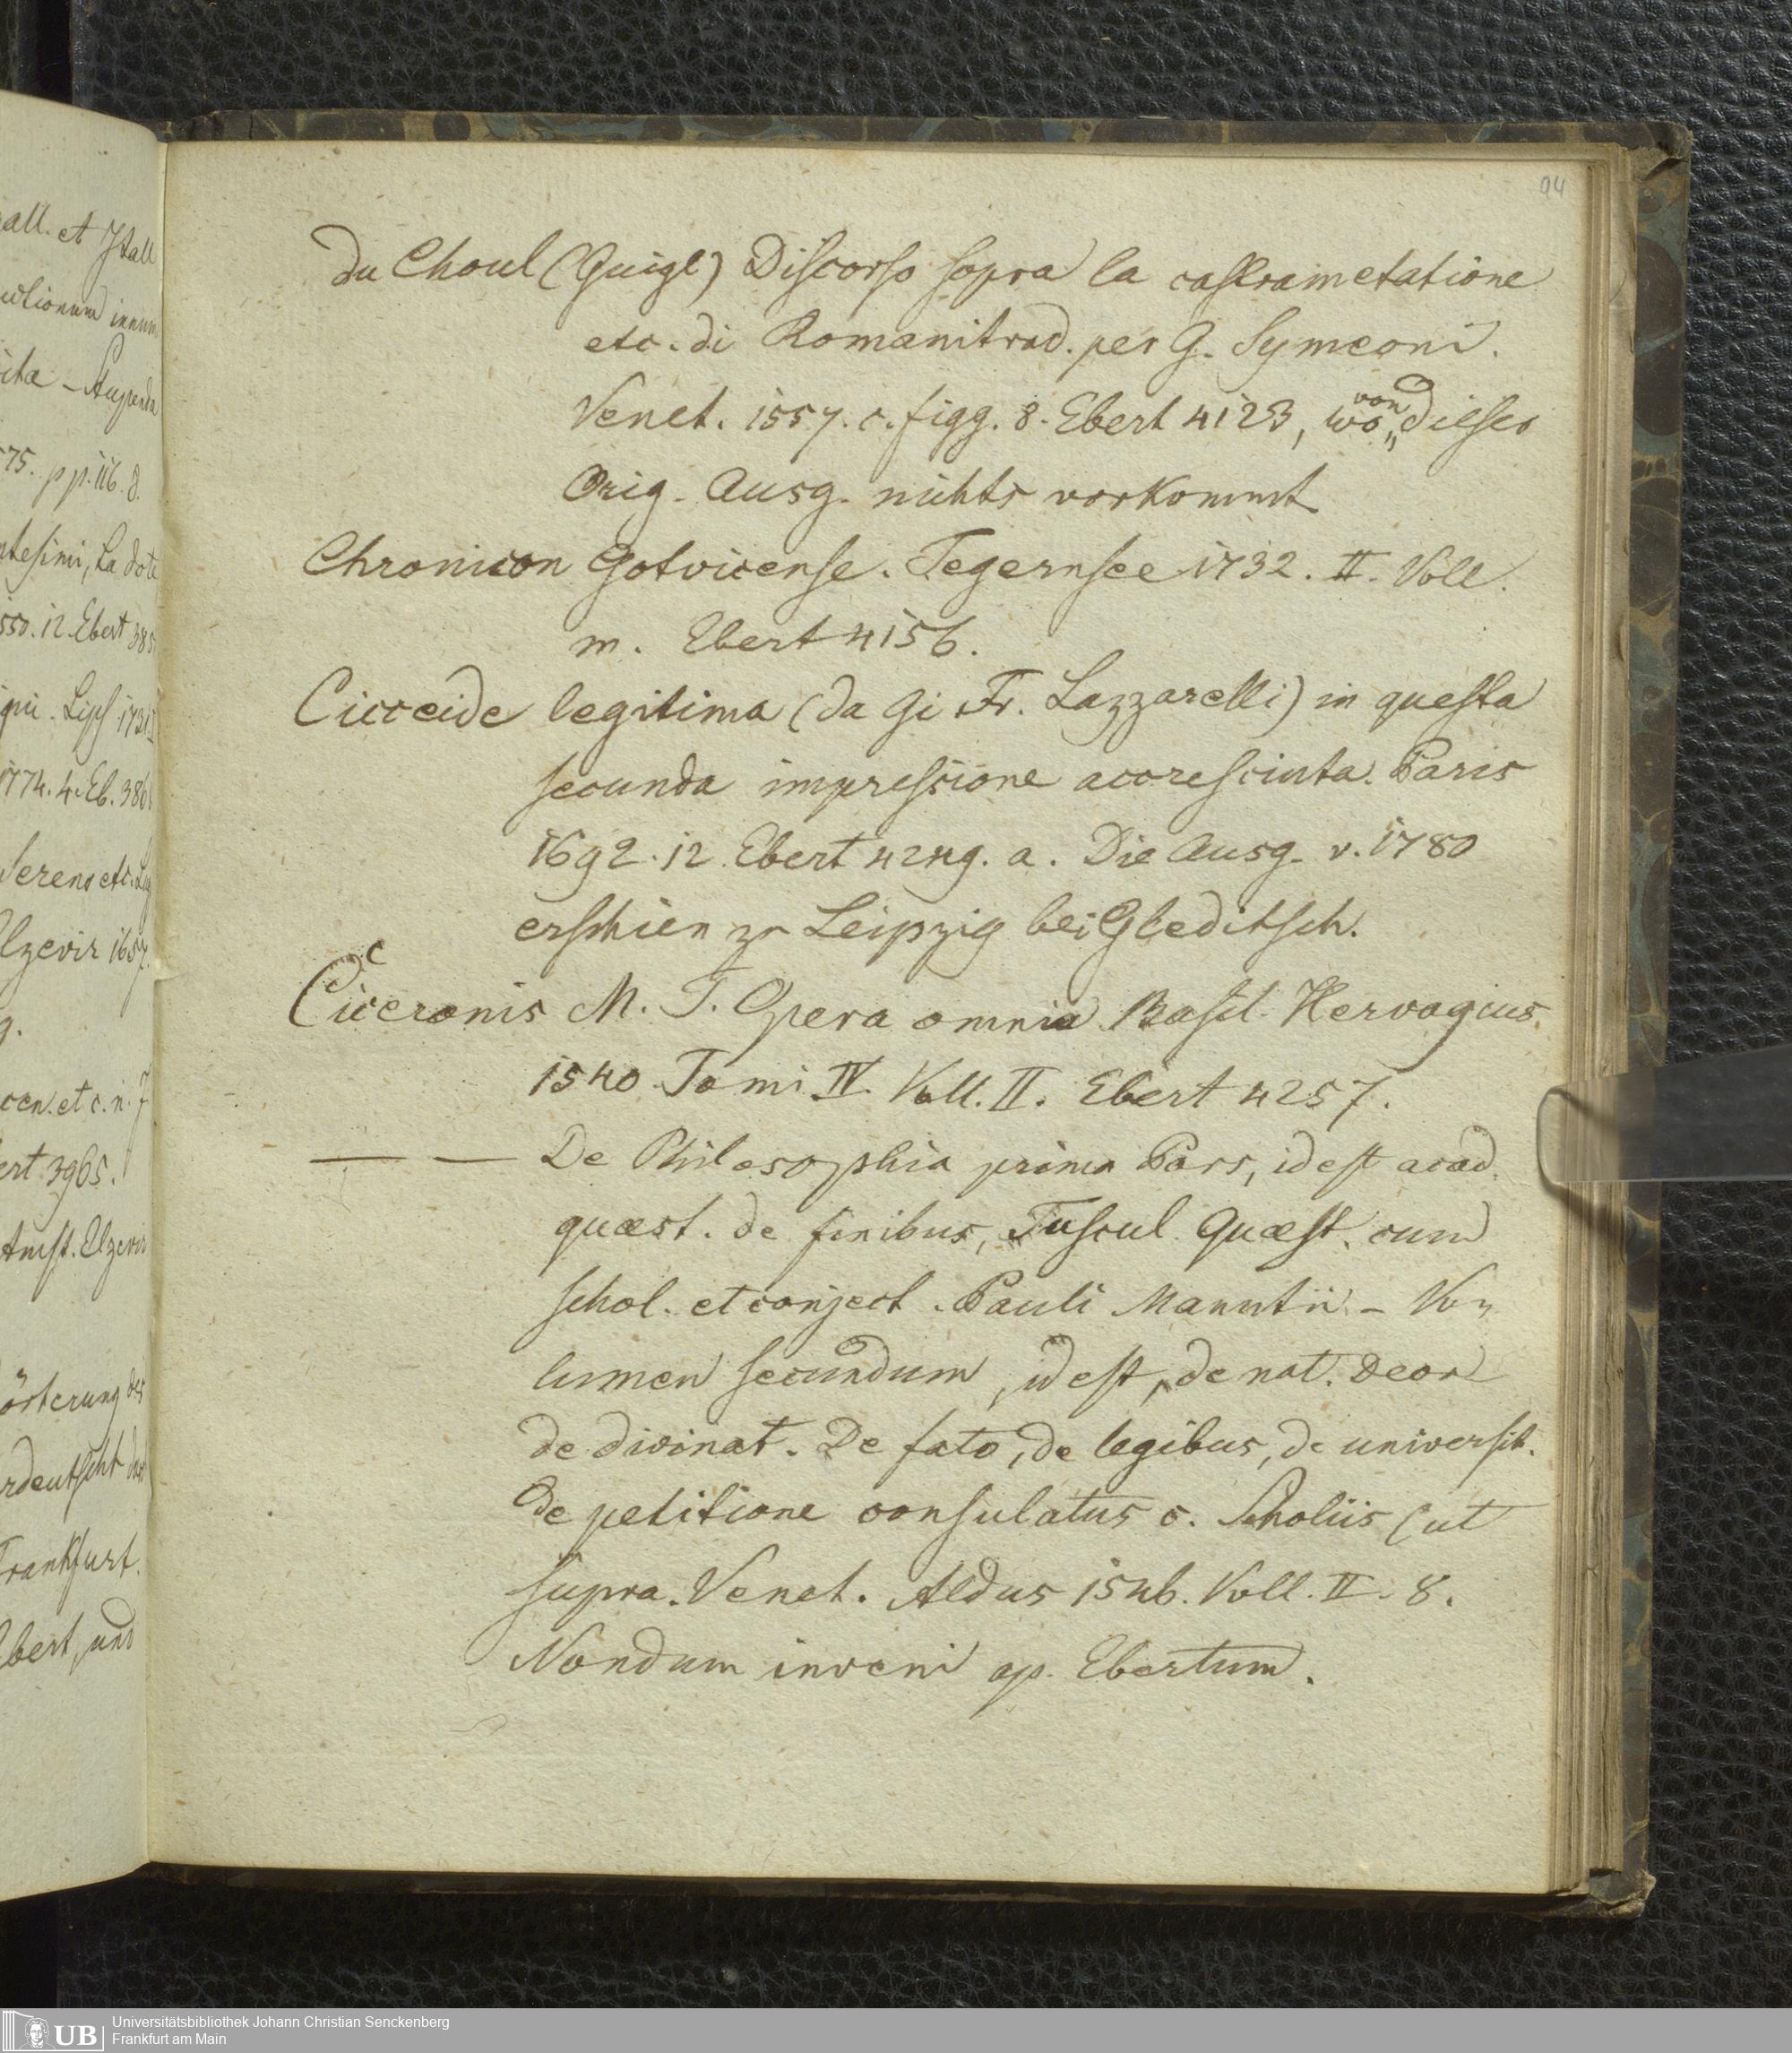 94
du Choul (Guigl) Discorso sopra la castrametatione
etc. di Romanitrad. per G. Symeoni.
Venet. 1557. c. figg. 8. Ebert 4123, wo von dieser
Orig. Ausg. nichts vorkommt
Chronicon Gotvicense. Tegernsee 1732. II. Voll.
m. Ebert 4156.
Cicceide legitima (da Gi Fr. Lazzarelli) in questa
secunda impressione accresciuta. Paris
1692. 12. Ebert 4249. a. Die Ausg. v. 1780
erschien zu Leipzig bei Gleditsch.
Ciceronis M. T. Opera omnia Basil. Hervagius
1540. Tomi IV. Voll. II. Ebert 4257.
— — De Philosophia prima Pars, id est acad.
quæst. de finibus, Tuscul. Quæst. cum
schol. et conject. Pauli Manutii – Vo„
lumen secundum, id est, de nat. Deor
de divinat. De fato, de legibus, de universit.
De petitione consulatus c. Scholiis (ut
supra. Venet. Aldus 1546. Voll. II. 8.
Nondum inveni ap. Ebertum.
all. et Ital
ita – Stupenda
575. pp. 116. 8.
ntesimi, La dote
550. 12. Ebert 385
. Lips 1731
1774. 4. Eb. 386
Sereno etc. Lug
lzevir 1657.
g.
cen. et c. n. J
ert 3965.
Amst. Elzevir
örterung der
rdeutscht
Frankfurt.
Ebert, und
UB Universitätsbibliothek Johann Christian Senckenberg
Frankfurt am Main